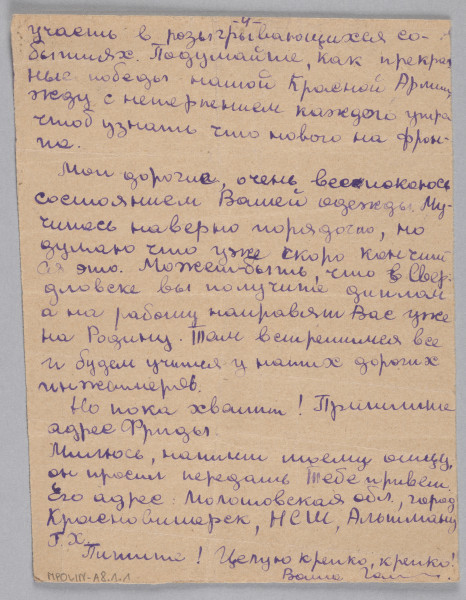 -4-
участь в розыгрывающихся со-
бытиях. Подумайте, как прекрас
ные победы нашой Красной Армии
Жду с нетерпением каждого утра
чтоб узнать что нового на фрон-
та.
Мои дорогие, очень беспокоюсь
состоянием Вашей одежды. Му-
читесь наверно порядочно, но
думаю что уже скоро кончит
ся это. Может-быть, что в Свер-
дловске вы получите диплом
а на работу направят Вас уже
на Родину. Там встретимся все
и будем учится у наших дорогих
инженеров.
Но пока хватит! Припишите
адрес Фриды.
Милюсь, напиши моему отцу,
он просил передать Тебе привет.
Его адрес: Молотовская обл., город
Красновишерск, НСШ, Альтману
Г.Х.
Пишите! Целую крепко, крепко!
Ваша
MPOLIN-A8.1.1